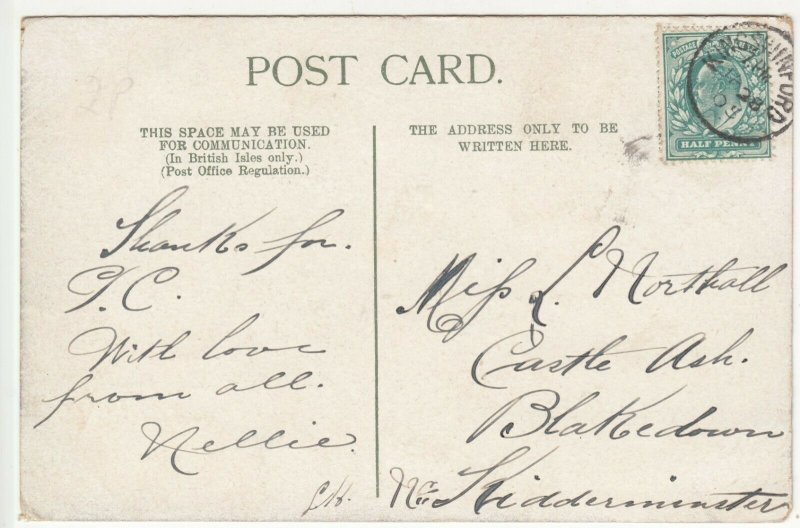 POST CARD.
THIS SPACE MAY BE USED
FOR COMMUNICATION.
(In British Isles only.)
(Post Office Regulation.)
THE ADDRESS ONLY TO BE
WRITTEN HERE.
POSTAGE
HALF PENNY
2P
Thanks for.
P.C.
With love
from all.
Nellie.
Miss L. Northall
Castle Ash.
Blakedown
Nr. Kidderminster